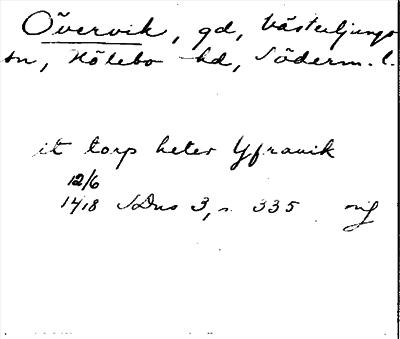 Övervik, gd, Västerljungs
sn, Hölebo hd, Söderm. l.
it torp heter Yfravik
12/6
1418 SDns 3, s. 335